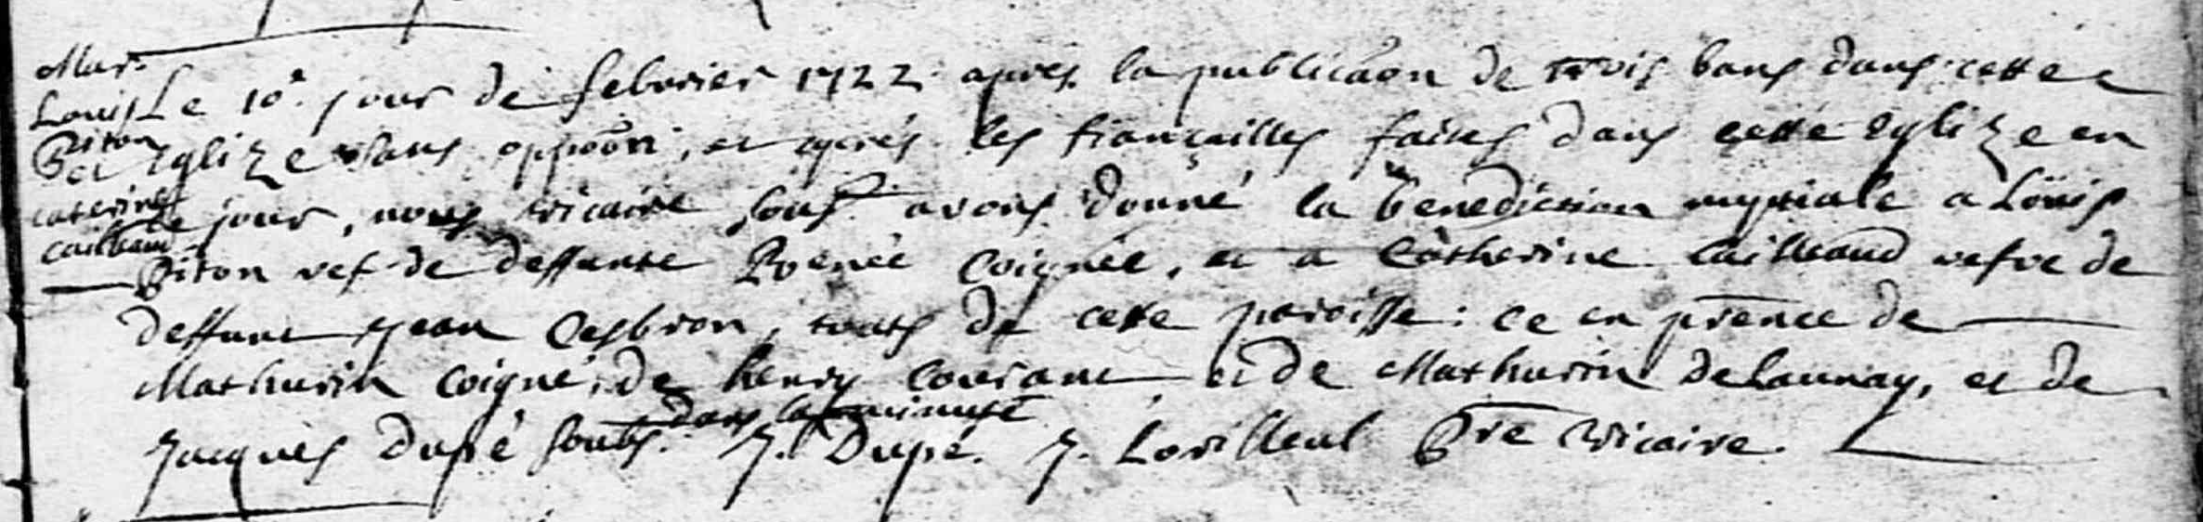 Mar.
Louis
Piton
et
caterine
cailleau
Le 10e. jour de febvrier 1722 apres la publicaõn de trois bans dans cette
Eglize sans oppoõn, et apres les fiançailles faites dans cette Eglize en
ce jour, nous vicaire sous. avons donné la benediction nuptiale a Loüis
Piton vef de deffunte Renée Coignée, et a Catherine Cailleaud vefve de
deffunt Jean Cesbron, touts de cette paroisse: ce en prẽnce de
Mathurin Coigné, de henry Courant et de Mathurin Delaunay, et de
dans la minute
Jacques Dupé soubs. J. Dupé. J. Lorilleul Pre vicaire.